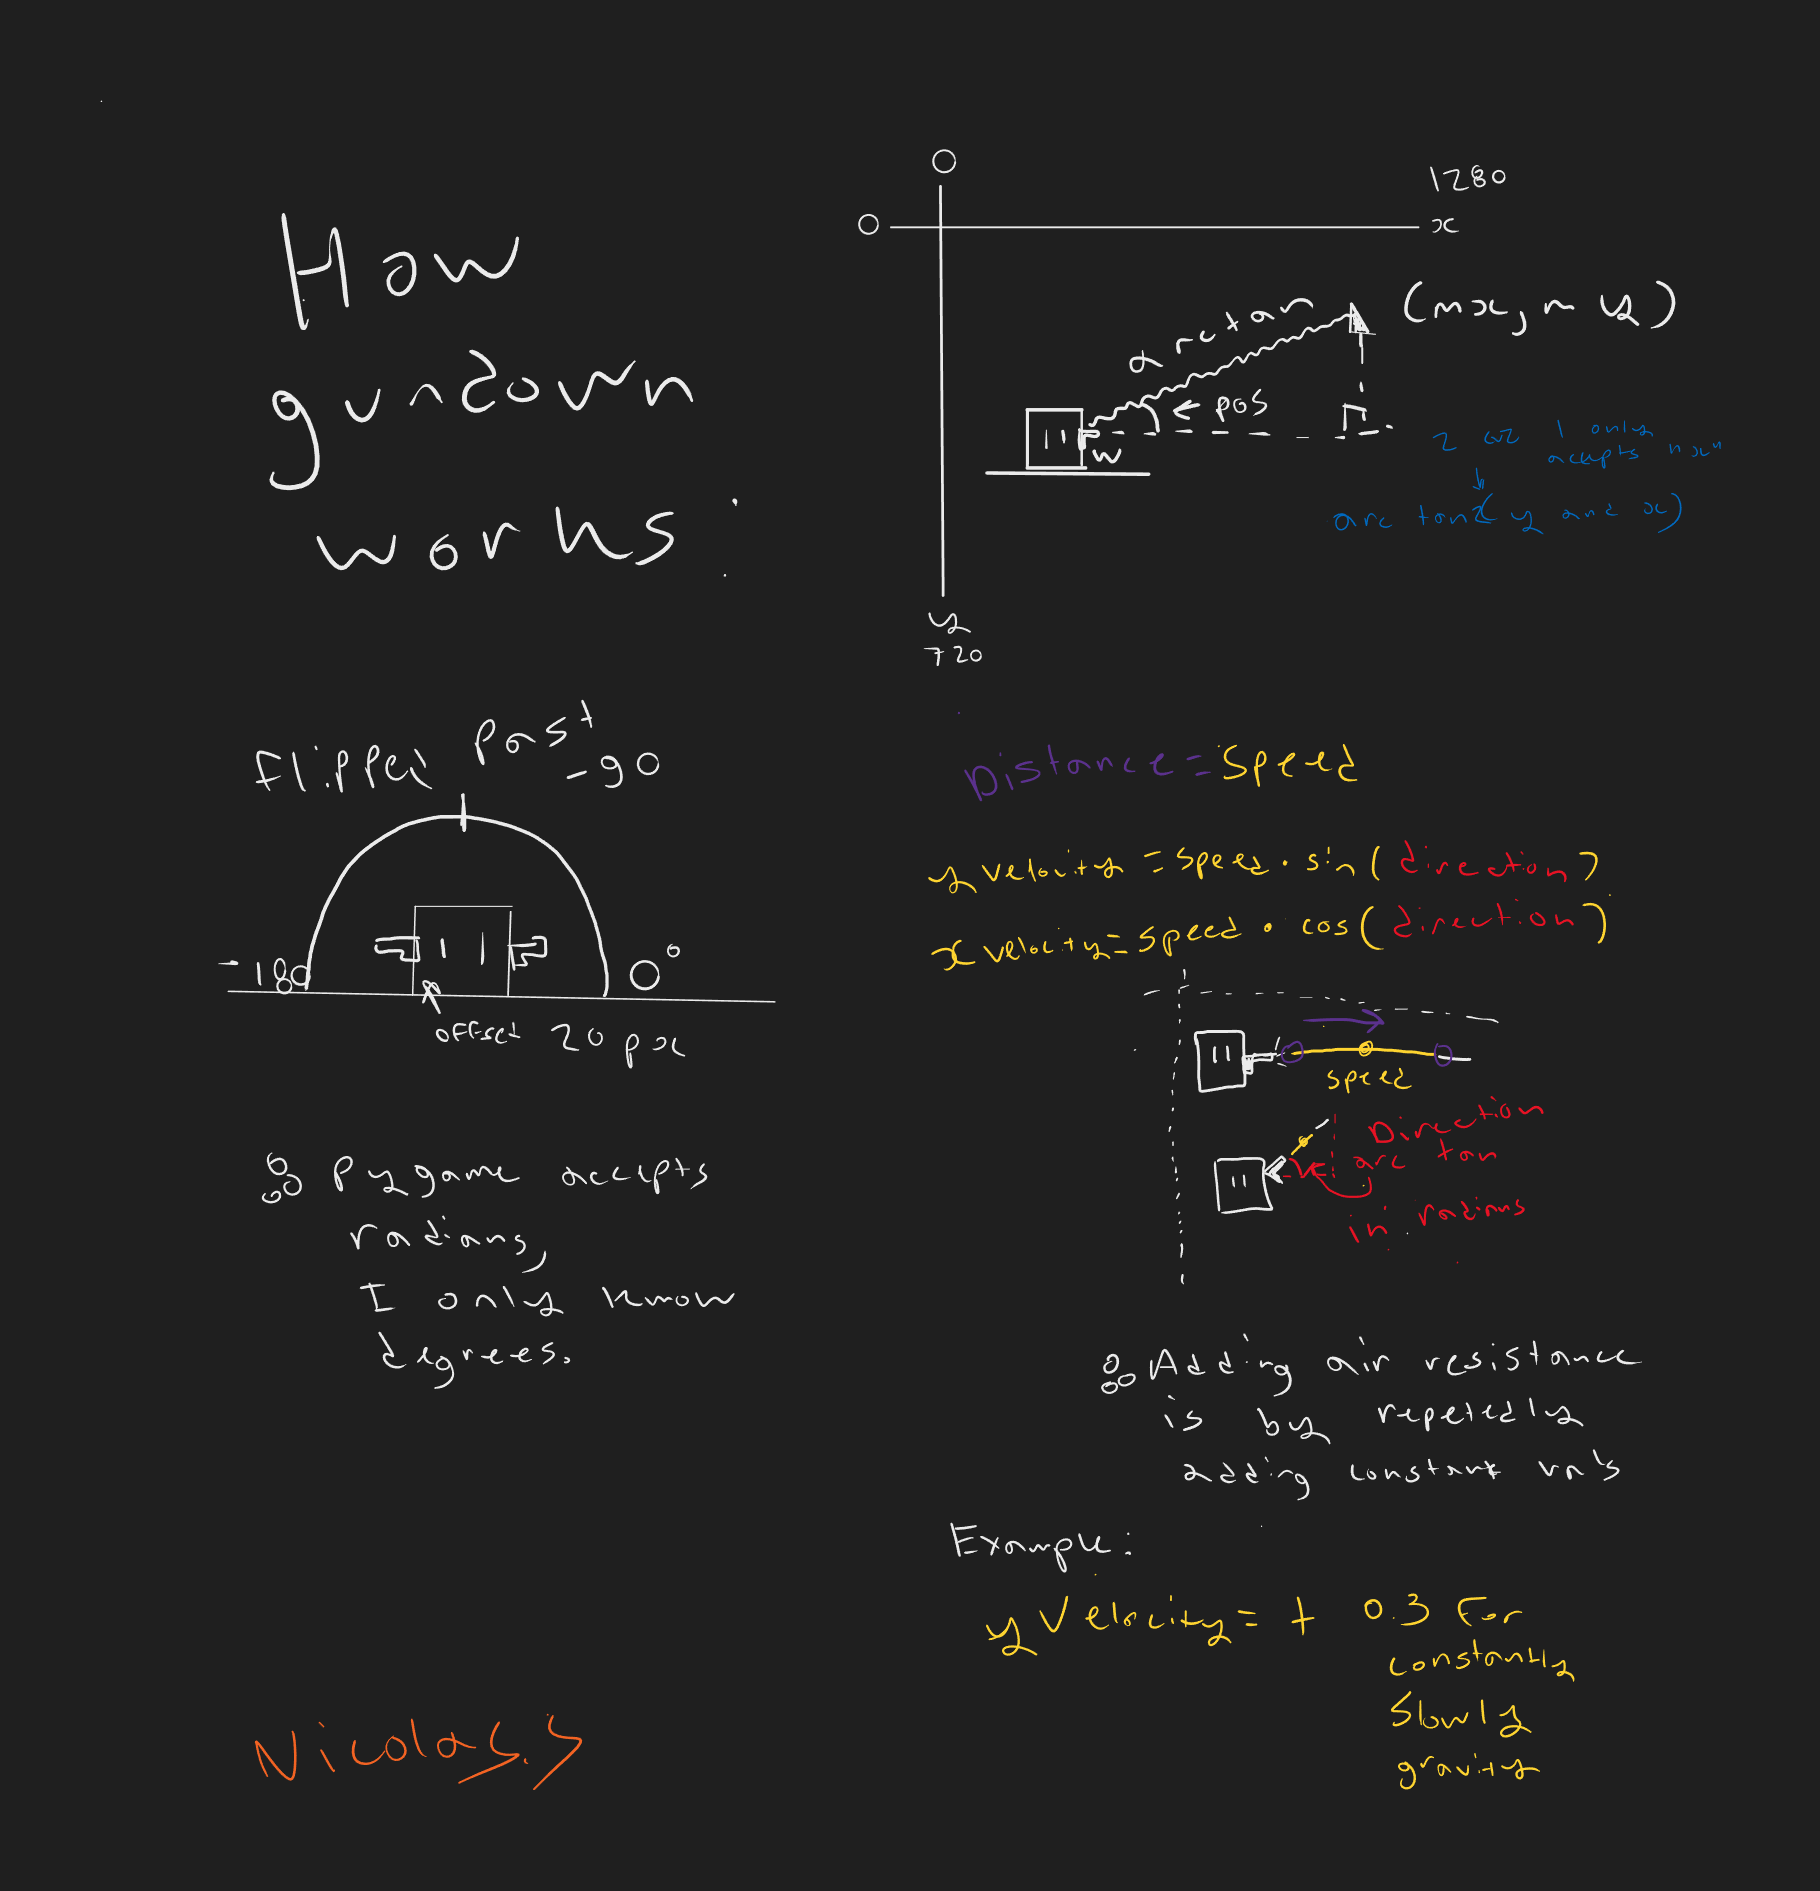 How
gundown
works:
0
0
1280
x
arctan
(mx, my)
← pos
w
2 cuz 1 only
accepts "x"
arc tan2( y and x)
y
720
flipped past
-90
-180
0°
offset 20 px
Pygame accepts
radians,
I only know
degrees.
Distance = Speed
y velocity = speed · sin( direction )
x velocity = speed · cos( direction )
speed
Direction
arc tan
in radians
Adding air resistance
is by repetedly
adding constant
Example:
y Velocity = + 0.3 For
constantly
Slowly
gravity
Nicolas.S